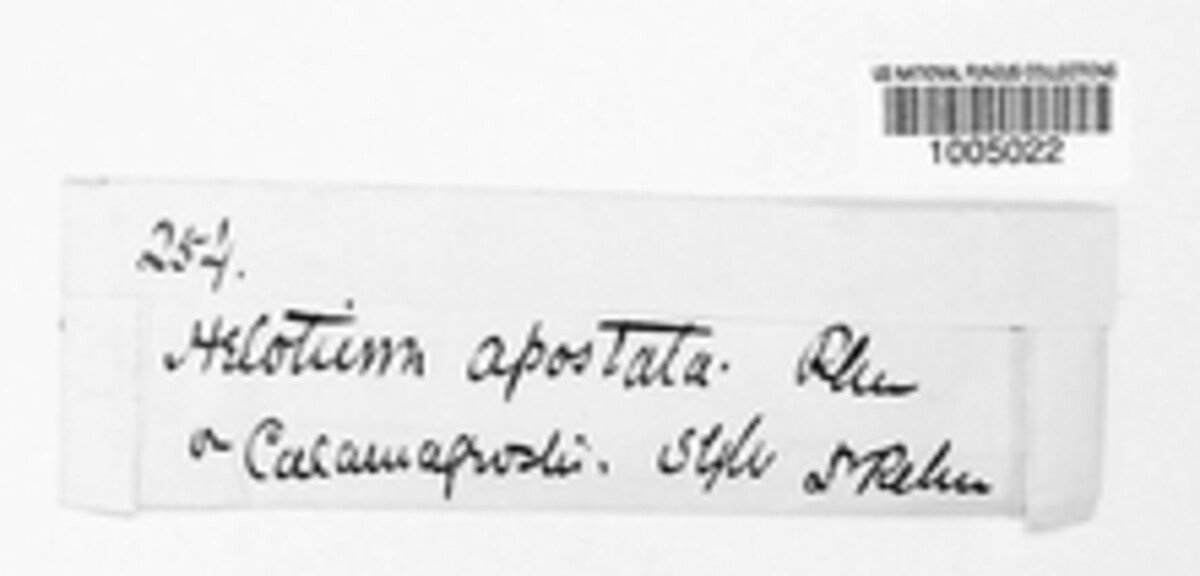 US NATIONAL FUNGUS COLLECTIONS
1005022
254.
Helotium apostata. Rehm
on Calamagrostis. Dr Rehm